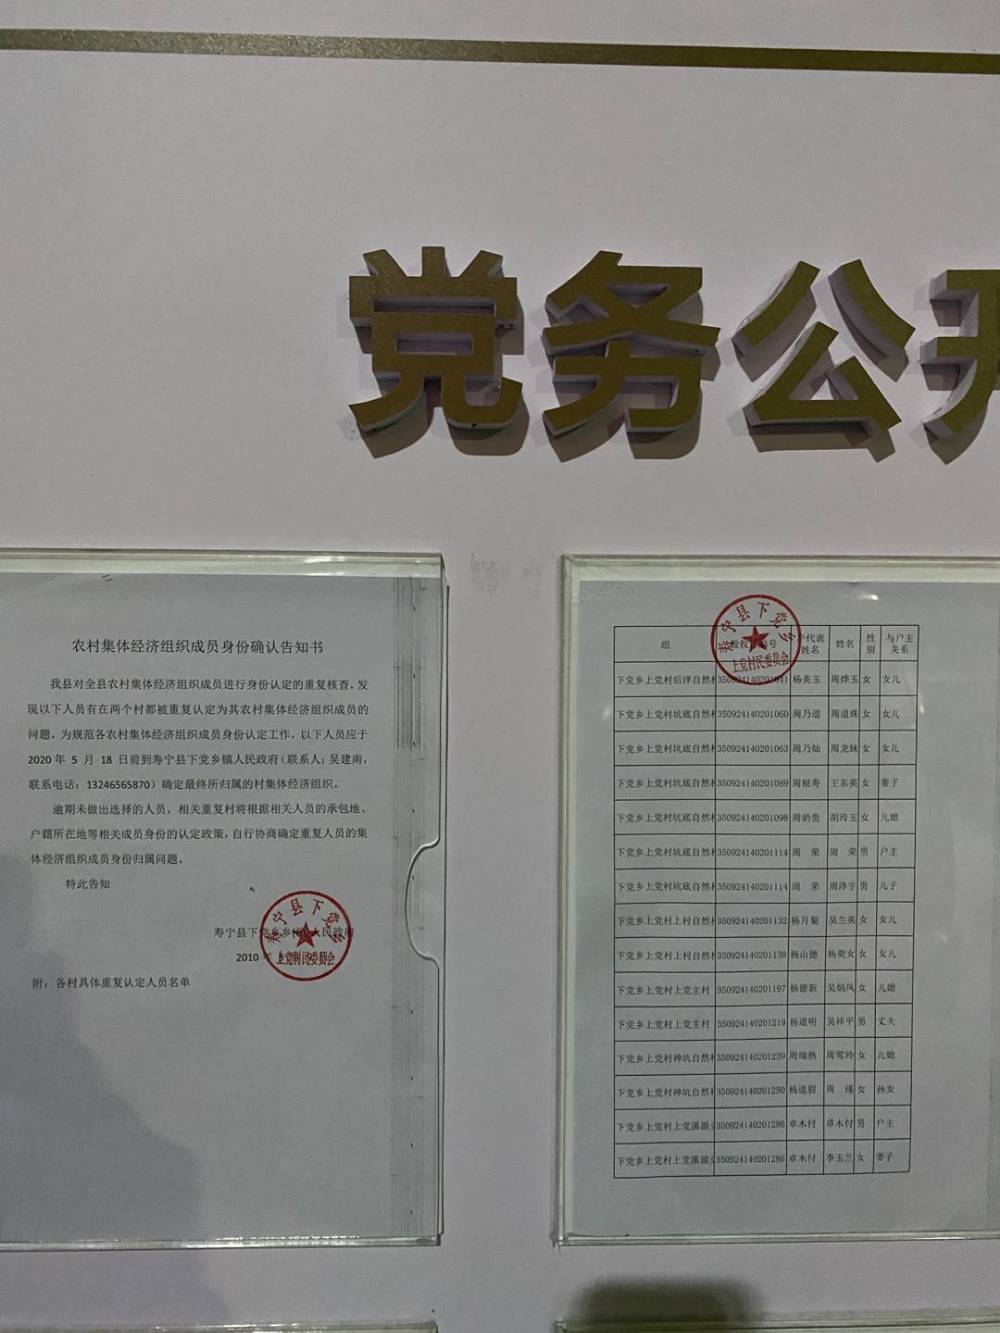 党务公开
农村集体经济组织成员身份确认告知书
我县对全县农村集体经济组织成员进行身份认定的重复核查，发
现以下人员有在两个村都被重复认定为其农村集体经济组织成员的
问题，为规范各农村集体经济组织成员身份认定工作，以下人员应于
2020 年 5 月 18 日前到寿宁县下党乡镇人民政府（联系人：吴建南，
联系电话：13246565870）确定最终所归属的村集体经济组织。
逾期未做出选择的人员，相关重复村将根据相关人员的承包地、
户籍所在地等相关成员身份的认定政策，自行协商确定重复人员的集
体经济组织成员身份归属问题。
特此告知
寿宁县下党乡乡 人民政府
2010 年
寿宁县下党乡
上党村民委员会
附：各村具体重复认定人员名单
寿宁县下党乡
上党村民委员会
组 股权 号 户代表姓名 姓名 性别 与户主关系
下党乡上党村后洋自然村 350924140201011 杨美玉 周烨玉 女 女儿
下党乡上党村坑底自然村 350924140201060 周乃道 周道珠 女 女儿
下党乡上党村坑底自然村 350924140201063 周乃灿 周龙妹 女 女儿
下党乡上党村坑底自然村 350924140201089 周根寿 王东英 女 妻子
下党乡上党村坑底自然村 350924140201098 周奶贵 胡玲玉 女 儿媳
下党乡上党村坑底自然村 350924140201114 周 荣 周 荣 男 户主
下党乡上党村坑底自然村 350924140201114 周 荣 周泽宇 男 儿子
下党乡上党村上村自然村 350924140201132 杨月菊 吴兰英 女 女儿
下党乡上党村上村自然村 350924140201138 杨山德 杨荷女 女 女儿
下党乡上党村上党主村 350924140201197 杨德新 吴炳凤 女 儿媳
下党乡上党村上党主村 350924140201219 杨道明 吴祥平 男 丈夫
下党乡上党村神坑自然村 350924140201239 周瑞热 周莺玲 女 儿媳
下党乡上党村神坑自然村 350924140201250 杨道眉 周 瑾 女 孙女
下党乡上党村上党溪源 350924140201286 卓木付 卓木付 男 户主
下党乡上党村上党溪源 350924140201286 卓木付 李玉兰 女 妻子